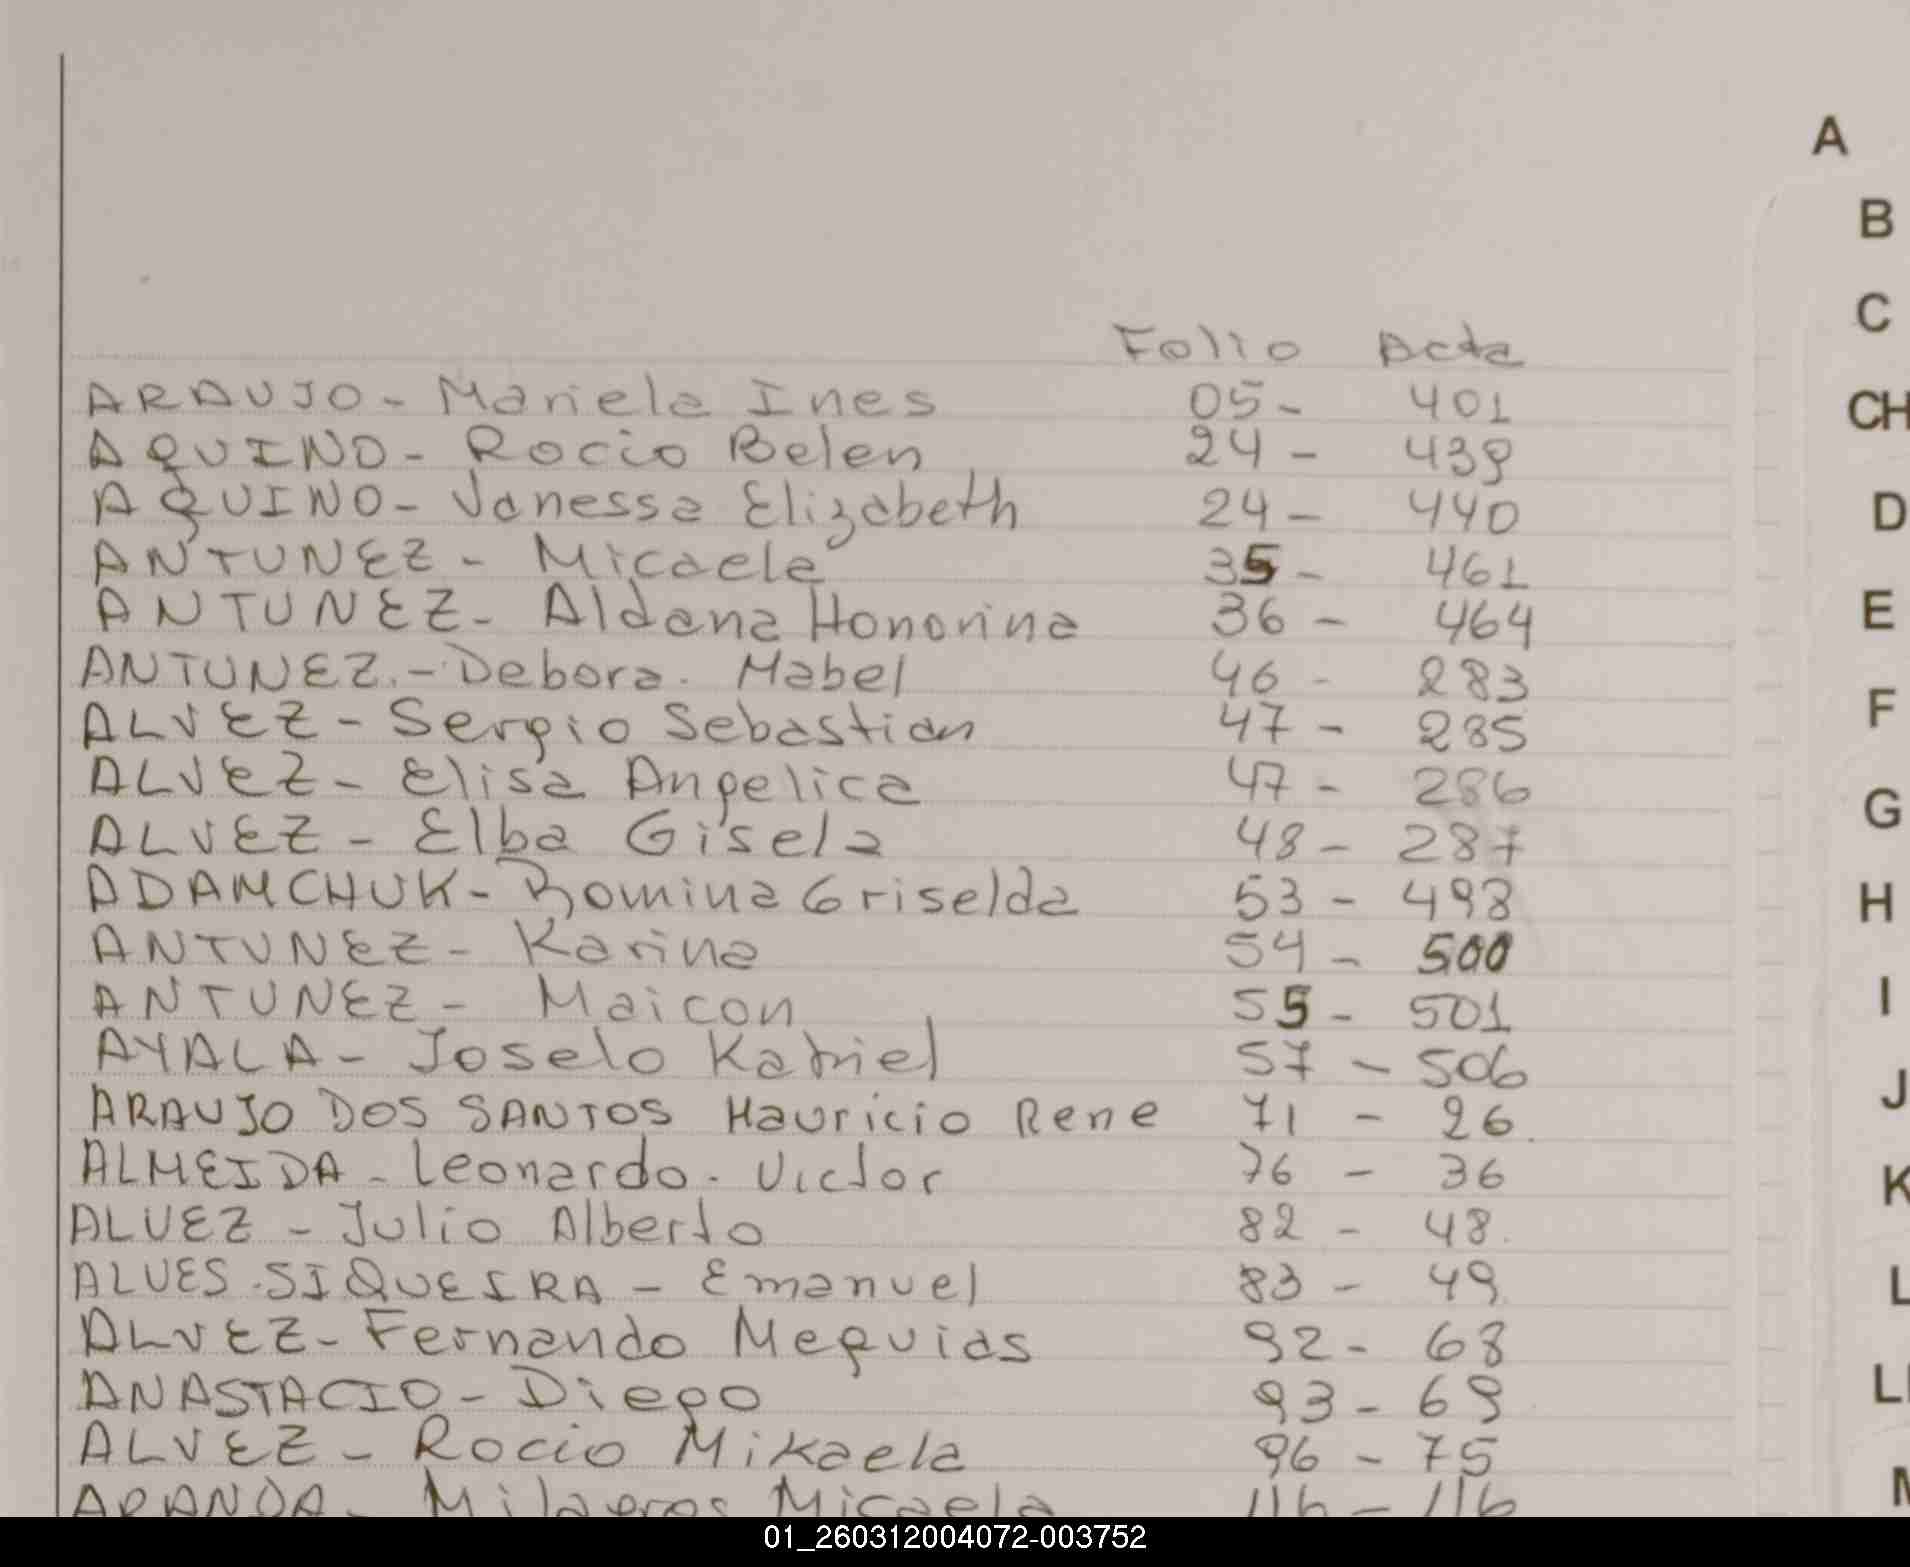 Folio Acta
ARAUJO - Mariela Ines 05 - 401
AQUINO - Rocio Belen 24 - 439
AQUINO - Vanessa Elizabeth 24 - 440
ANTUNEZ - Micaela 35 - 461
ANTUNEZ - Aldana Honorina 36 - 464
ANTUNEZ. - Debora. Mabel 46 - 283
ALVEZ - Sergio Sebastian 47 - 285
ALVEZ - Elisa Angelica 47 - 286
ALVEZ - Elba Gisela 48 - 287
ADAMCHUK - Romina Griselda 53 - 498
ANTUNEZ - Karina 54 - 500
ANTUNEZ - Maicon 55 - 501
AYALA - Joselo Katriel 57 - 506
ARAUJO DOS SANTOS Mauricio Rene 71 - 26.
ALMEIDA - Leonardo. Victor 76 - 36
ALVEZ - Julio Alberto 82 - 48.
ALVES.SIQUEIRA - Emanuel 83 - 49
ALVEZ - Fernando Mequias 92 - 68
ANASTACIO - Diego 93 - 69
ALVEZ - Rocio Mikaela 96 - 75
ARANDA - Milagros Micaela 116 - 116
A
B
C
CH
D
E
F
G
H
I
J
K
L
M
01_260312004072-003752